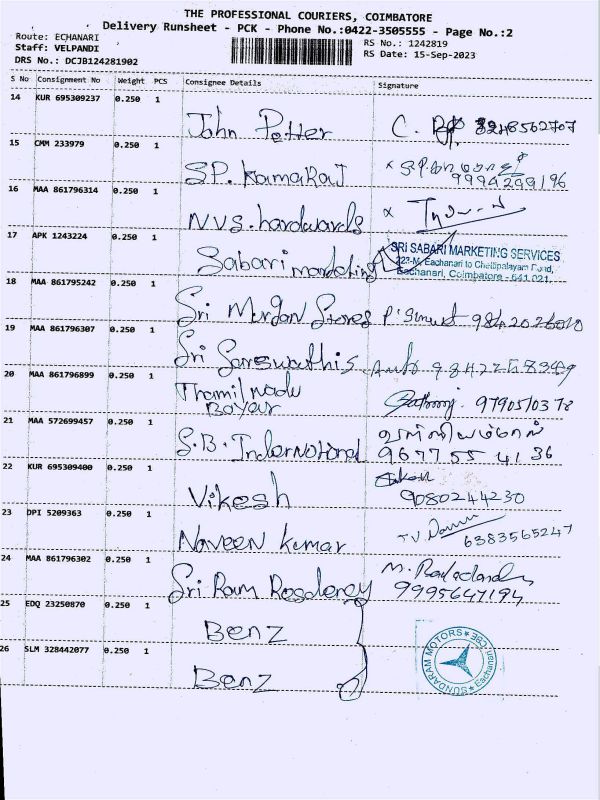 THE PROFESSIONAL COURIERS, COIMBATORE
Delivery Runsheet - PCK - Phone No.:0422-3505555 - Page No.:2
Route: ECHANARI
RS No.: 1242819
Staff: VELPANDI
RS Date: 15-Sep-2023
DRS No.: DCJB124281902
S No Consignment No Weight PCS Consignee Details Signature
14 KUR 695309237 0.250 1
John Petter C.
15 CMM 233979 0.250 1
SP. Kamaraj
9994299196
16 MAA 861796314 0.250 1
NVS. hardwards
17 APK 1243224 0.250 1
Sabari marketing
SRI SABARI MARKETING SERVICES
Eachanari to Chettipalayam Road,
Eachanari, Coimbatore - 641 021.
18 MAA 861795242 0.250 1
Sri Murgan Stores
19 MAA 861796307 0.250 1
Sri Sarswathis
20 MAA 861796899 0.250 1
Thamil nadu
9790510378
21 MAA 572699457 0.250 1
S.B. International
9677 55 41 36
22 KUR 695309400 0.250 1
Vikesh 9080244230
23 DPI 5209363 0.250 1
Naveen kumar 6383565247
24 MAA 861796302 0.250 1
Sri Ram 9995647194
25 EDQ 23250870 0.250 1
Benz
26 SLM 328442077 0.250 1
Benz
SUNDARAM MOTORS CBE Eachanari